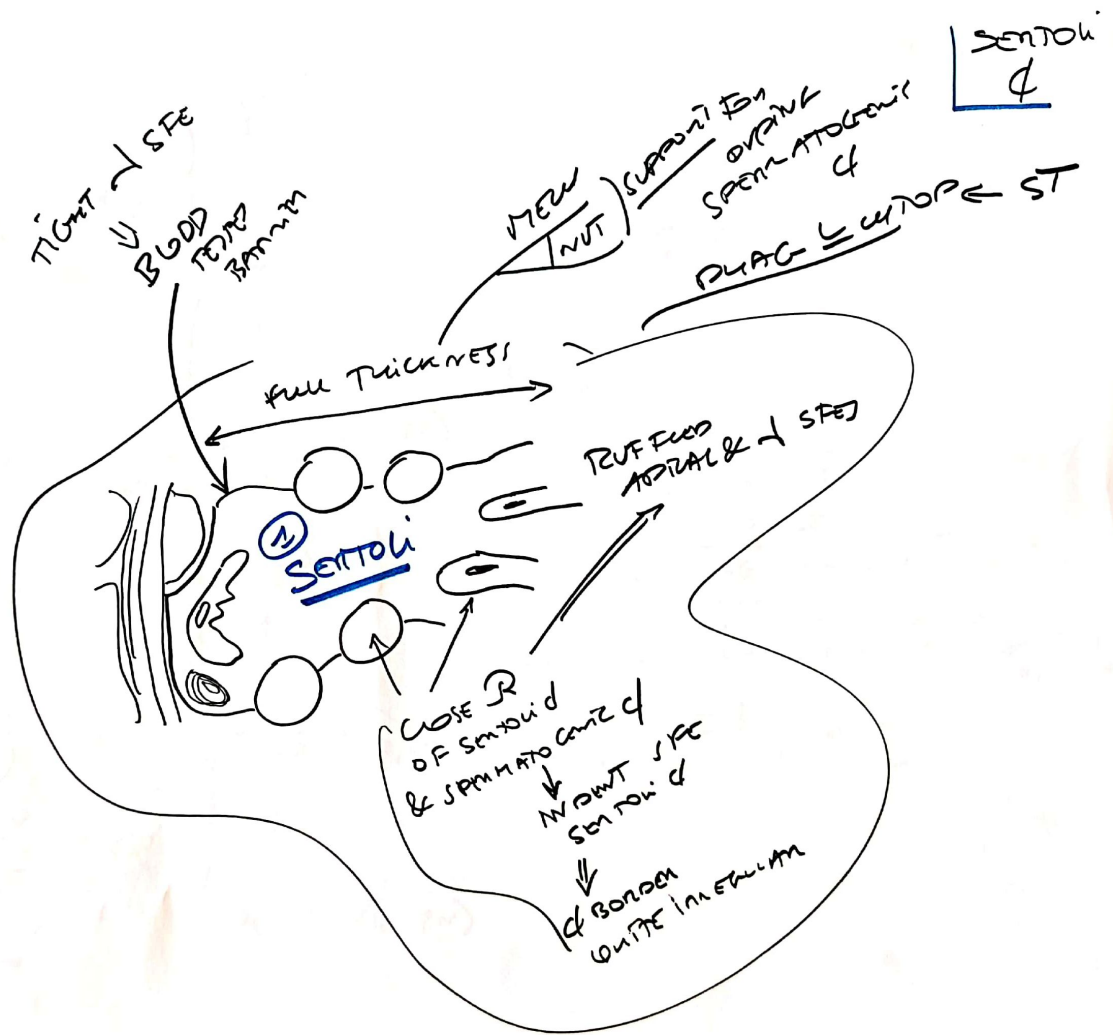 SERTOLI
¢
TIGHT J SFE
⇓
BLOOD
TESTES
BARRIER
MECH
NUT
SUPPORT FOR
DVPING
SPERMATOGENIC
¢
PHAG CYTOP ← ST
FULL THICKNESS
RUFFLED
APICAL & J SFES
① SERTOLI
CLOSE R
OF SERTOLI ¢
& SPERMATOGENIC ¢
↓
INDENT SFE
SERTOLI ¢
⇓
¢ BORDER
QUITE IRREGULAR